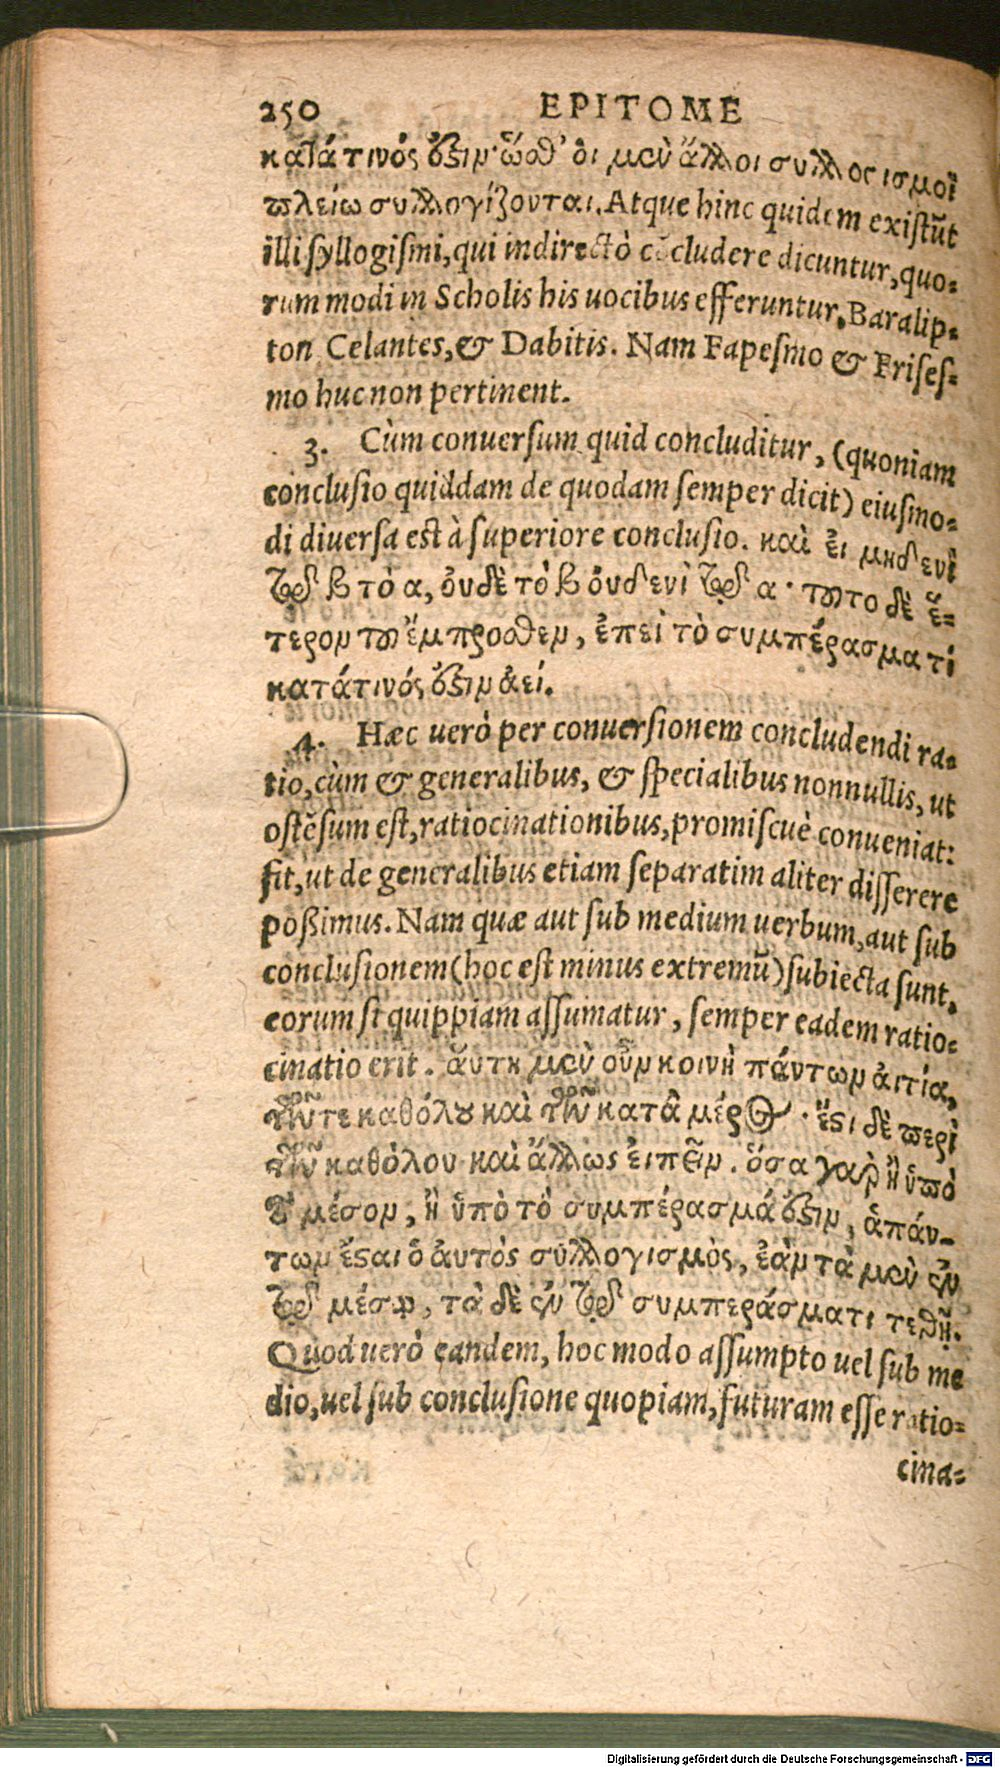 250 EPITOME
κατάτινός ὅξιν· ὥσθ' ὁι μεν ἄλλοι συλλογισμοὶ
πλείω συλλογίζονται. Atque hinc quidem existūt
illi syllogismi, qui indirectò cōcludere dicuntur, quo-
rum modi in Scholis his uocibus efferuntur, Baralip-
ton Celantes, & Dabitis. Nam Fapesmo & Frises-
mo huc non pertinent.
3. Cùm conuersum quid concluditur, (quoniam
conclusio quiddam de quodam semper dicit) eiusmo-
di diuersa est à superiore conclusio. καὶ ἐι μηδενὶ
τῷ β τὸ α, ὀυδὲ τὸ β ὀυδενὶ τῷ α· τοῦτο δὲ ἕ-
τερον τοῦ ἔμπροσθεν, ἐπεὶ τὸ συμπέρασμα τὶ
κατάτινός ὅξιν ἀεί.
4. Hæc uerò per conuersionem concludendi ra-
tio, cùm & generalibus, & specialibus nonnullis, ut
ostēsum est, ratiocinationibus, promiscuè conueniat:
fit, ut de generalibus etiam separatim aliter disserere
poßimus. Nam quæ aut sub medium uerbum, aut sub
conclusionem (hoc est minus extremū) subiecta sunt,
eorum si quippiam assumatur, semper eadem ratio-
cinatio erit. ἅυτη μεν οὖν κοινὴ πάντων ἀιτία,
τῶν τε καθόλου καὶ τῶν κατὰ μέρος· ἔστι δὲ περὶ
τῶν καθόλου καὶ ἄλλως ἐιπεῖν. ὅσα γὰρ ἢ ὑπὸ
τὸ μέσον, ἢ ὑπὸ τὸ συμπέρασμά ὅξιν, ἁπάν-
των ἔσται ὁ ἀυτὸς συλλογισμὸς, ἐὰν τὰ μεν ἐν
τῷ μέσῳ, τὰ δὲ ἐν τῷ συμπεράσματι τεθῇ.
Quod uerò eandem, hoc modo assumpto uel sub me
dio, uel sub conclusione quopiam, futuram esse ratio-
cina-
Digitalisierung gefördert durch die Deutsche Forschungsgemeinschaft - DFG